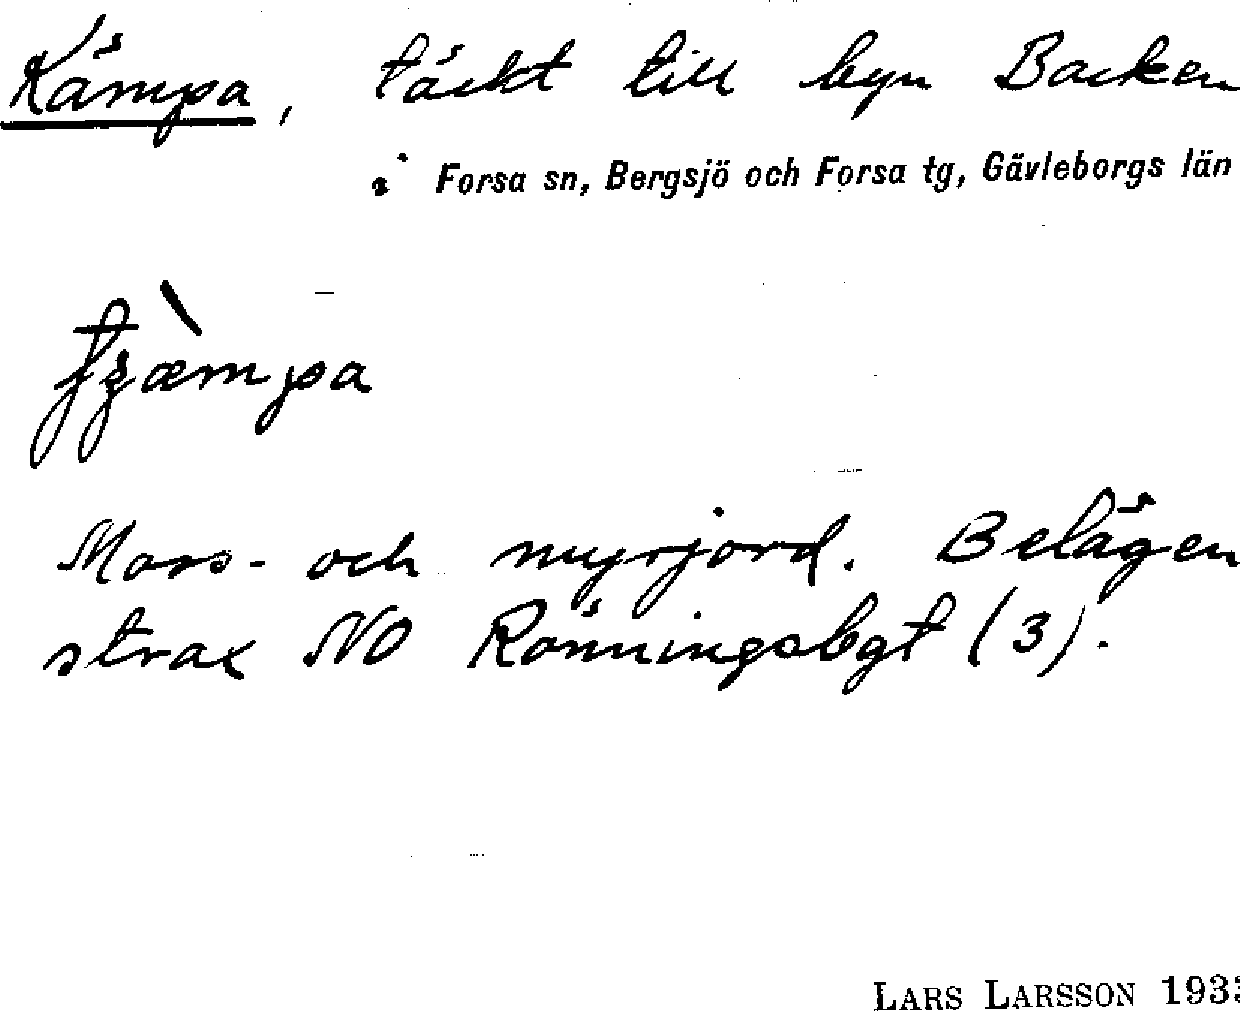 Kämpa, täckt till byn Backen
i Forsa sn, Bergsjö och Forsa tg, Gävleborgs län
Moss- och myrjord. Belägen
strax NO Rönningsbgt (3).
LARS LARSSON 193